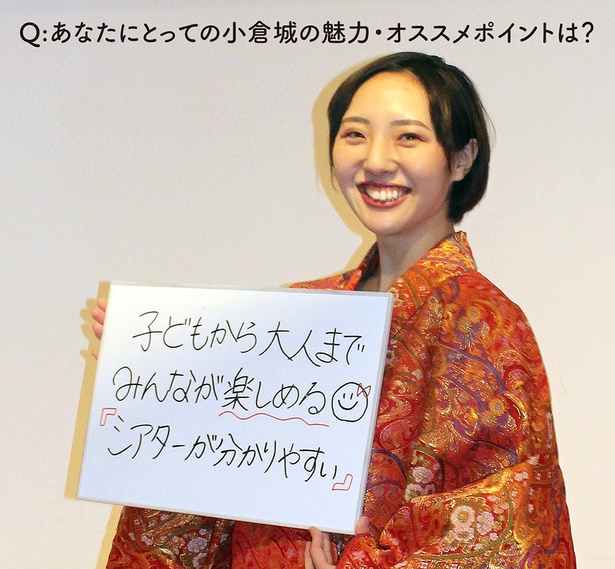 Q:あなたにとっての小倉城の魅力・オススメポイントは?
子どもから大人まで
みんなが楽しめる
『シアターが分かりやすい』